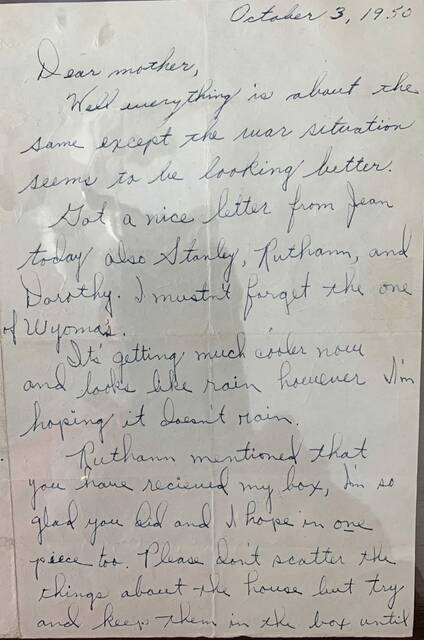 October 3, 1950
Dear mother,
Well everything is about the
same except the war situation
seems to be looking better.
Got a nice letter from Jean
today also Stanley, Ruthann, and
Dorothy. I mustn't forget the one
of Wyoma's.
It's getting much cooler now
and looks like rain however I'm
hoping it doesn't rain.
Ruthann mentioned that
you have recieved my box, I'm so
glad you did and I hope in one
piece too. Please don't scatter the
things about the house but try
and keep them in the box until